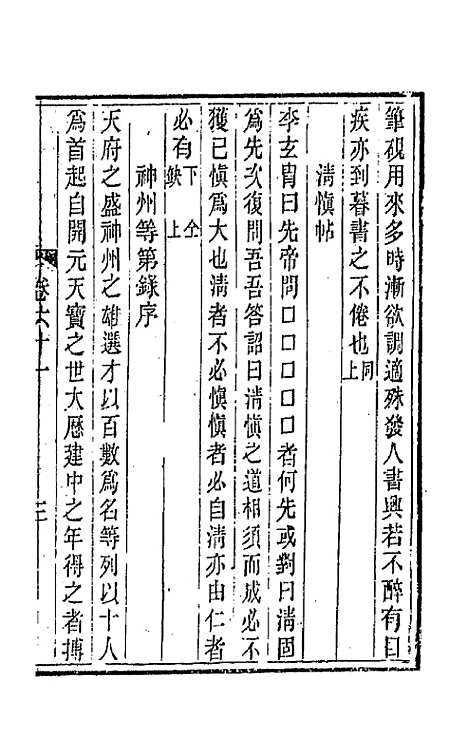 筆硯用來多時漸欲調適殊發人書興若不醉有曰
疾亦到暮書之不倦也同上
清慎帖
李玄胄曰先帝問口口口口口者何先或對曰清固
為先次復問吾吾答詔曰清慎之道相須而成必不
獲已慎為大也清者不必慎慎者必自清亦由仁者
必有下缺 仝上
神州等第錄序
天府之盛神州之雄選才以百數爲名等列以十人
爲首起自開元天寶之世大歷建中之年得之者摶
卷六十一
三